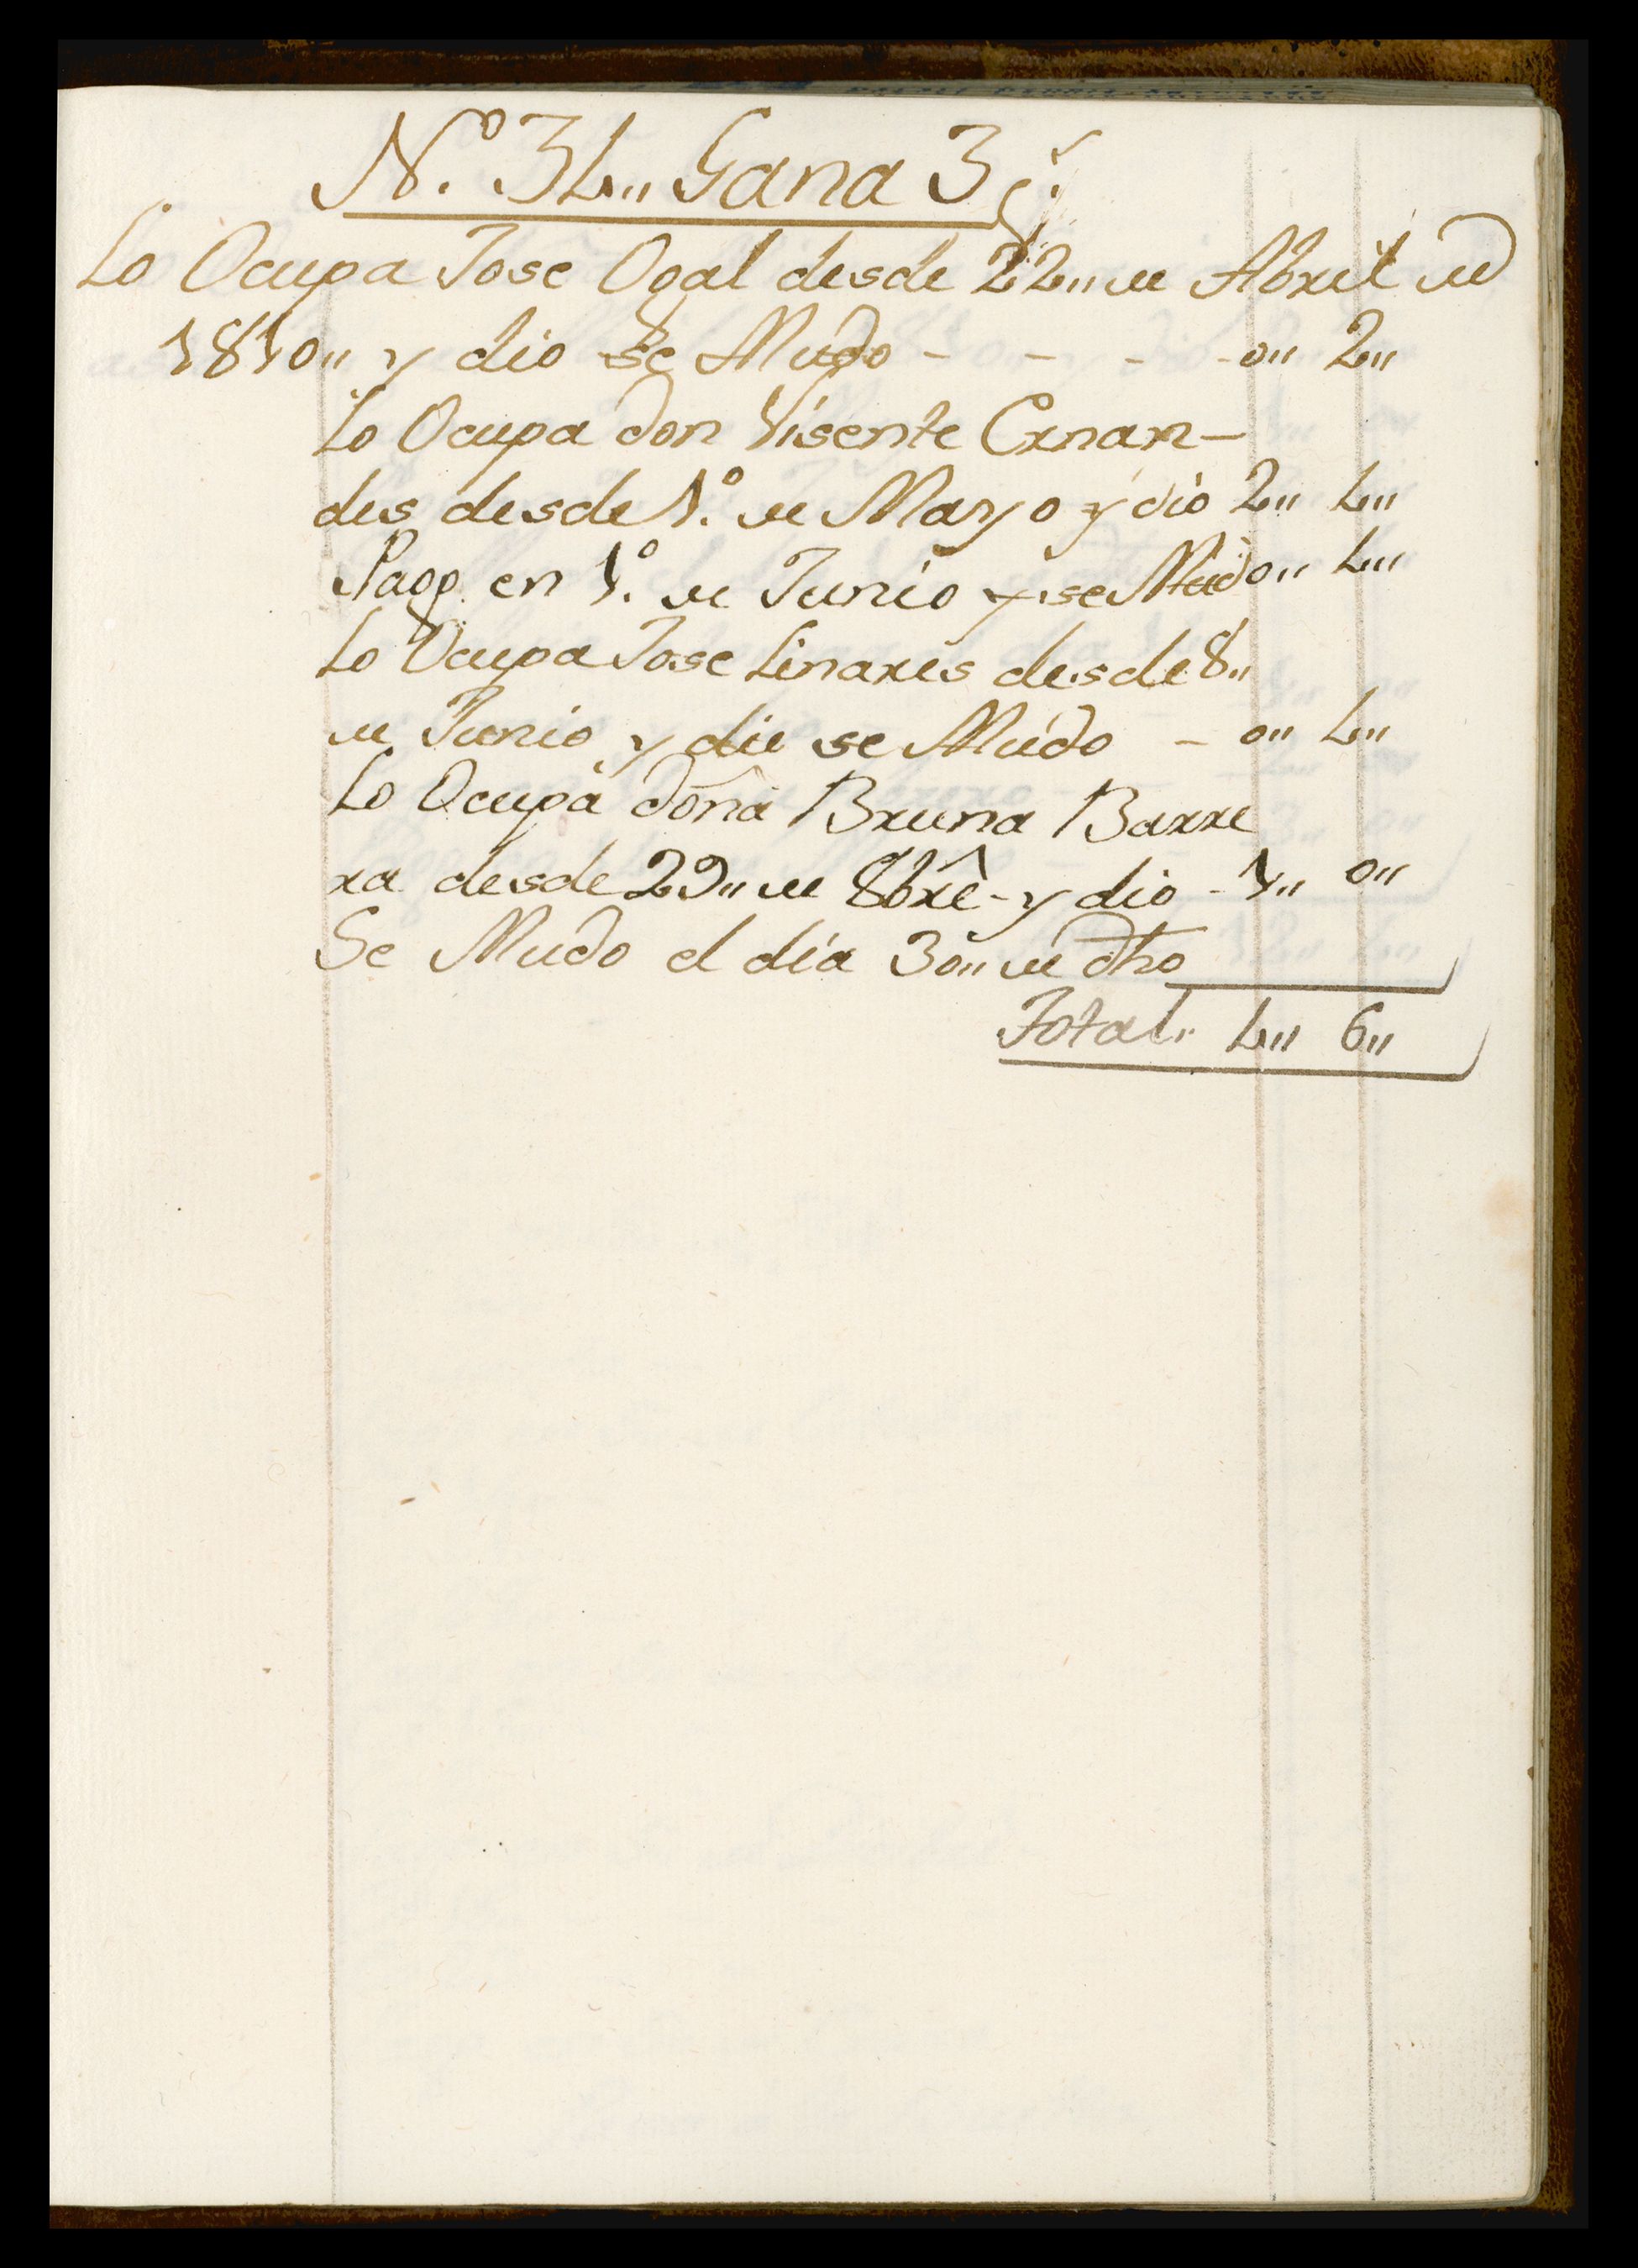 N.º 34,, Gana 3 p.
Lo Ocupa Jose Ogal desde 22,, de Abril de
1810,, y dio se Mudo - - - - 0,, 2,,
Lo Ocupa don Visente Ernan-
des desde 1.º de Mayo y dio 2,, 4,,
Pago en 1.º de Junio y se Mudo 0,, 4,,
Lo Ocupa Jose Linares desde 8,,
de Junio y dio se Mudo - 0,, 4,,
Lo Ocupa doña Bruna Barre
ra desde 29,, de 8bre - y dio - 1,, 0,,
Se Mudo el dia 30,, de dho
Total,, 4,, 6,,